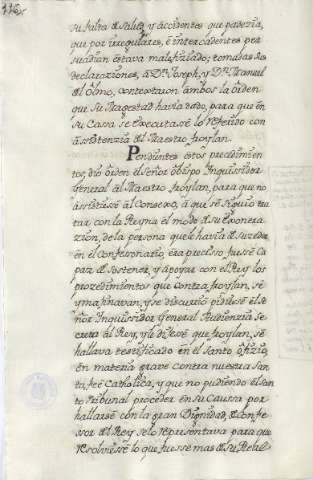 116
su falta de salud, y accidentes que padezia,
que por irregulares, é intercadentes per
suadian estava maleficiado; tomadas las
declaraziones, a Dn. Joseph, y Dn. Manuel
del Olmo, contextaron ambos la orden
que Su Magestad havia dado, para que en
su Cassa se executase lo referido con
assistenzia del Maestro froylan.
Pendientes estos procedimien
tos, dió orden el señor obispo Inquissidor
General al Maestro froylan, para que no
assistiesse al Consexo, á que se siguio tra
tar con la Reyna el modo de su exonera
zion, de la persona que le havia de suzeder
en el confesonario, era preciso fuesse Ca
paz de sostener, y apoyar con el Rey los
prozedimientos que contra froylan, se
ymaginavan, y se discurrio pidiese el se
ñor Inquissidor General Audienzia Se
creta al Rey, y le dixesé que froylan, se
hallava testificado en el Santo ofizio,
en materia grave contra nuestra San
ta fee Catholica, y que no pudiendo el San
to Tribunal proceder en su Caussa por
hallarse con la gran Dignidad, de Confe
sor del Rey se lo representava para que
resolviesse lo que fuesse mas de su Real